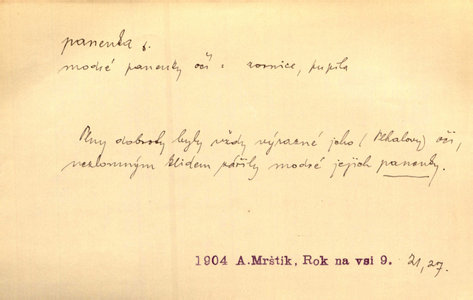 panenka f.
modré panenky očí = zornice, pupila
Plny dobroty byly vždy výrazné jeho (Plkalovy) oči,
nezlomným klidem zářily modré jejich panenky.
1904 A.Mrštík, Rok na vsi 9. 21,27.